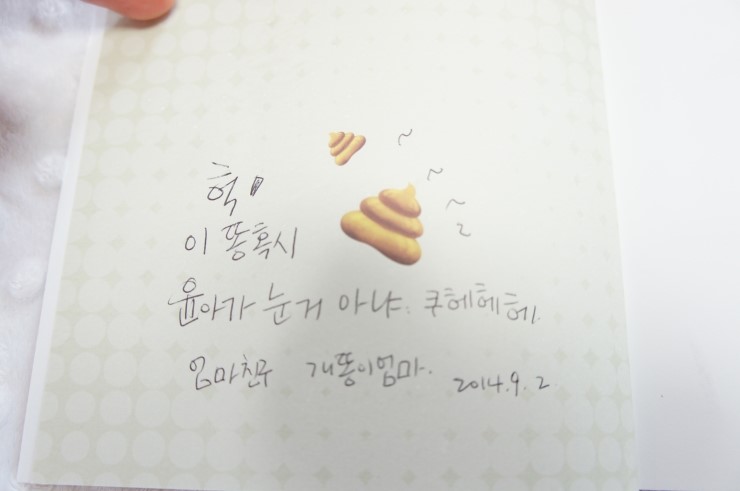 헉!
이 똥 혹시
윤아가 눈거 아냐. 쿠헤헤헤헤.
엄마친구 개똥이엄마. 2014.9.2